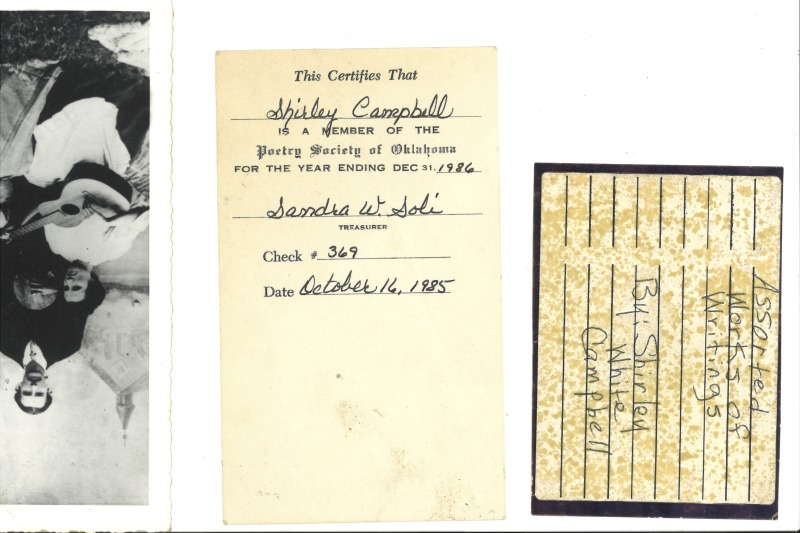 This Certifies That
Shirley Campbell
IS A MEMBER OF THE
Poetry Society of Oklahoma
FOR THE YEAR ENDING DEC 31, 1986
Sandra W. Soli
TREASURER
Check # 369
Date October 16, 1985
Assorted
Works of
Writings
By: Shirley
White
Campbell